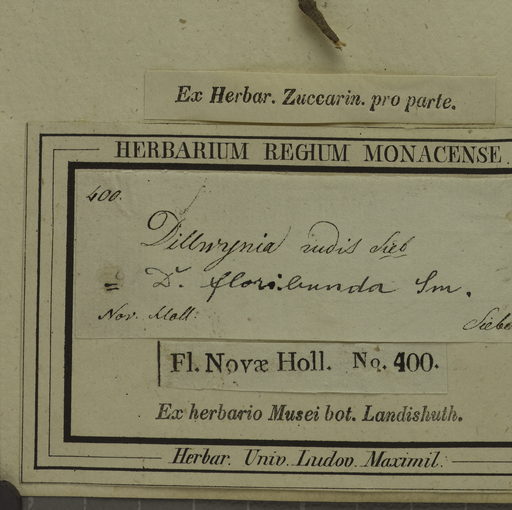 Ex Herbar. Zuccarin. pro parte.
HERBARIUM REGIUM MONACENSE.
400.
Dillwynia rudis Sieb
= D. floribunda Sm.
Nov. Holl:
Sieber
Fl. Novæ Holl. No. 400.
Ex herbario Musei bot. Landishuth.
Herbar. Univ. Ludov. Maximil.